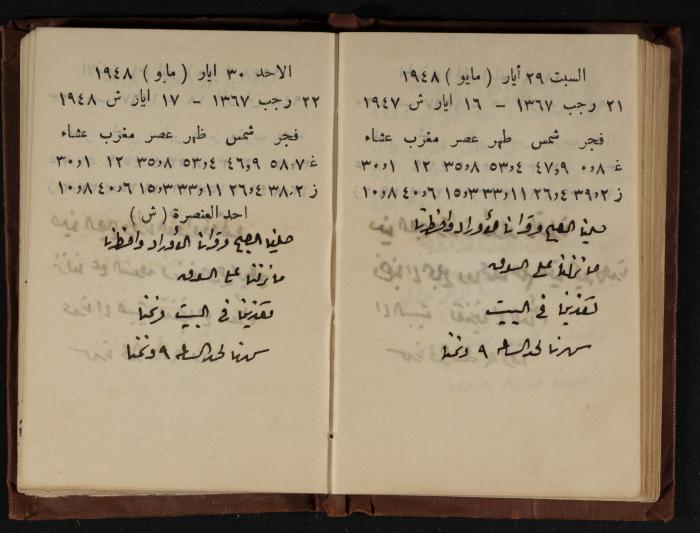 السبت ٢٩ أيار ( مايو ) ١٩٤٨
٢١ رجب ١٣٦٧ - ١٦ ايار ش ١٩٤٧
فجر شمس ظهر عصر مغرب عشاء
غ ٨و٠ ٩و٤٧ ٤و٥٣ ٨و٣٥ ١٢ ١و٣٠
ز ٢و٣٩ ٤و٢٦ ١١و٣٣ ٣و١٥ ٦و٤٠ ٨و١٠
صلينا الصبح وقرأنا الأوراد وافطرنا
ما نزلنا على السوق
تغدينا في البيت
سهرنا لحد الساعه ٩ ونمنا
الاحد ٣٠ ايار ( مايو ) ١٩٤٨
٢٢ رجب ١٣٦٧ - ١٧ ايار ش ١٩٤٨
فجر شمس ظهر عصر مغرب عشاء
غ ٧و٥٨ ٩و٤٦ ٤و٥٣ ٨و٣٥ ١٢ ١و٣٠
ز ٢و٣٨ ٤و٢٦ ١١و٣٣ ٣و١٥ ٦و٤٠ ٨و١٠
احد العنصرة ( ش )
صلينا الصبح وقرأنا الأوراد وافطرنا
ما نزلنا على السوق
تغدينا في البيت ونمنا
سهرنا لحد الساعه ٩ ونمنا